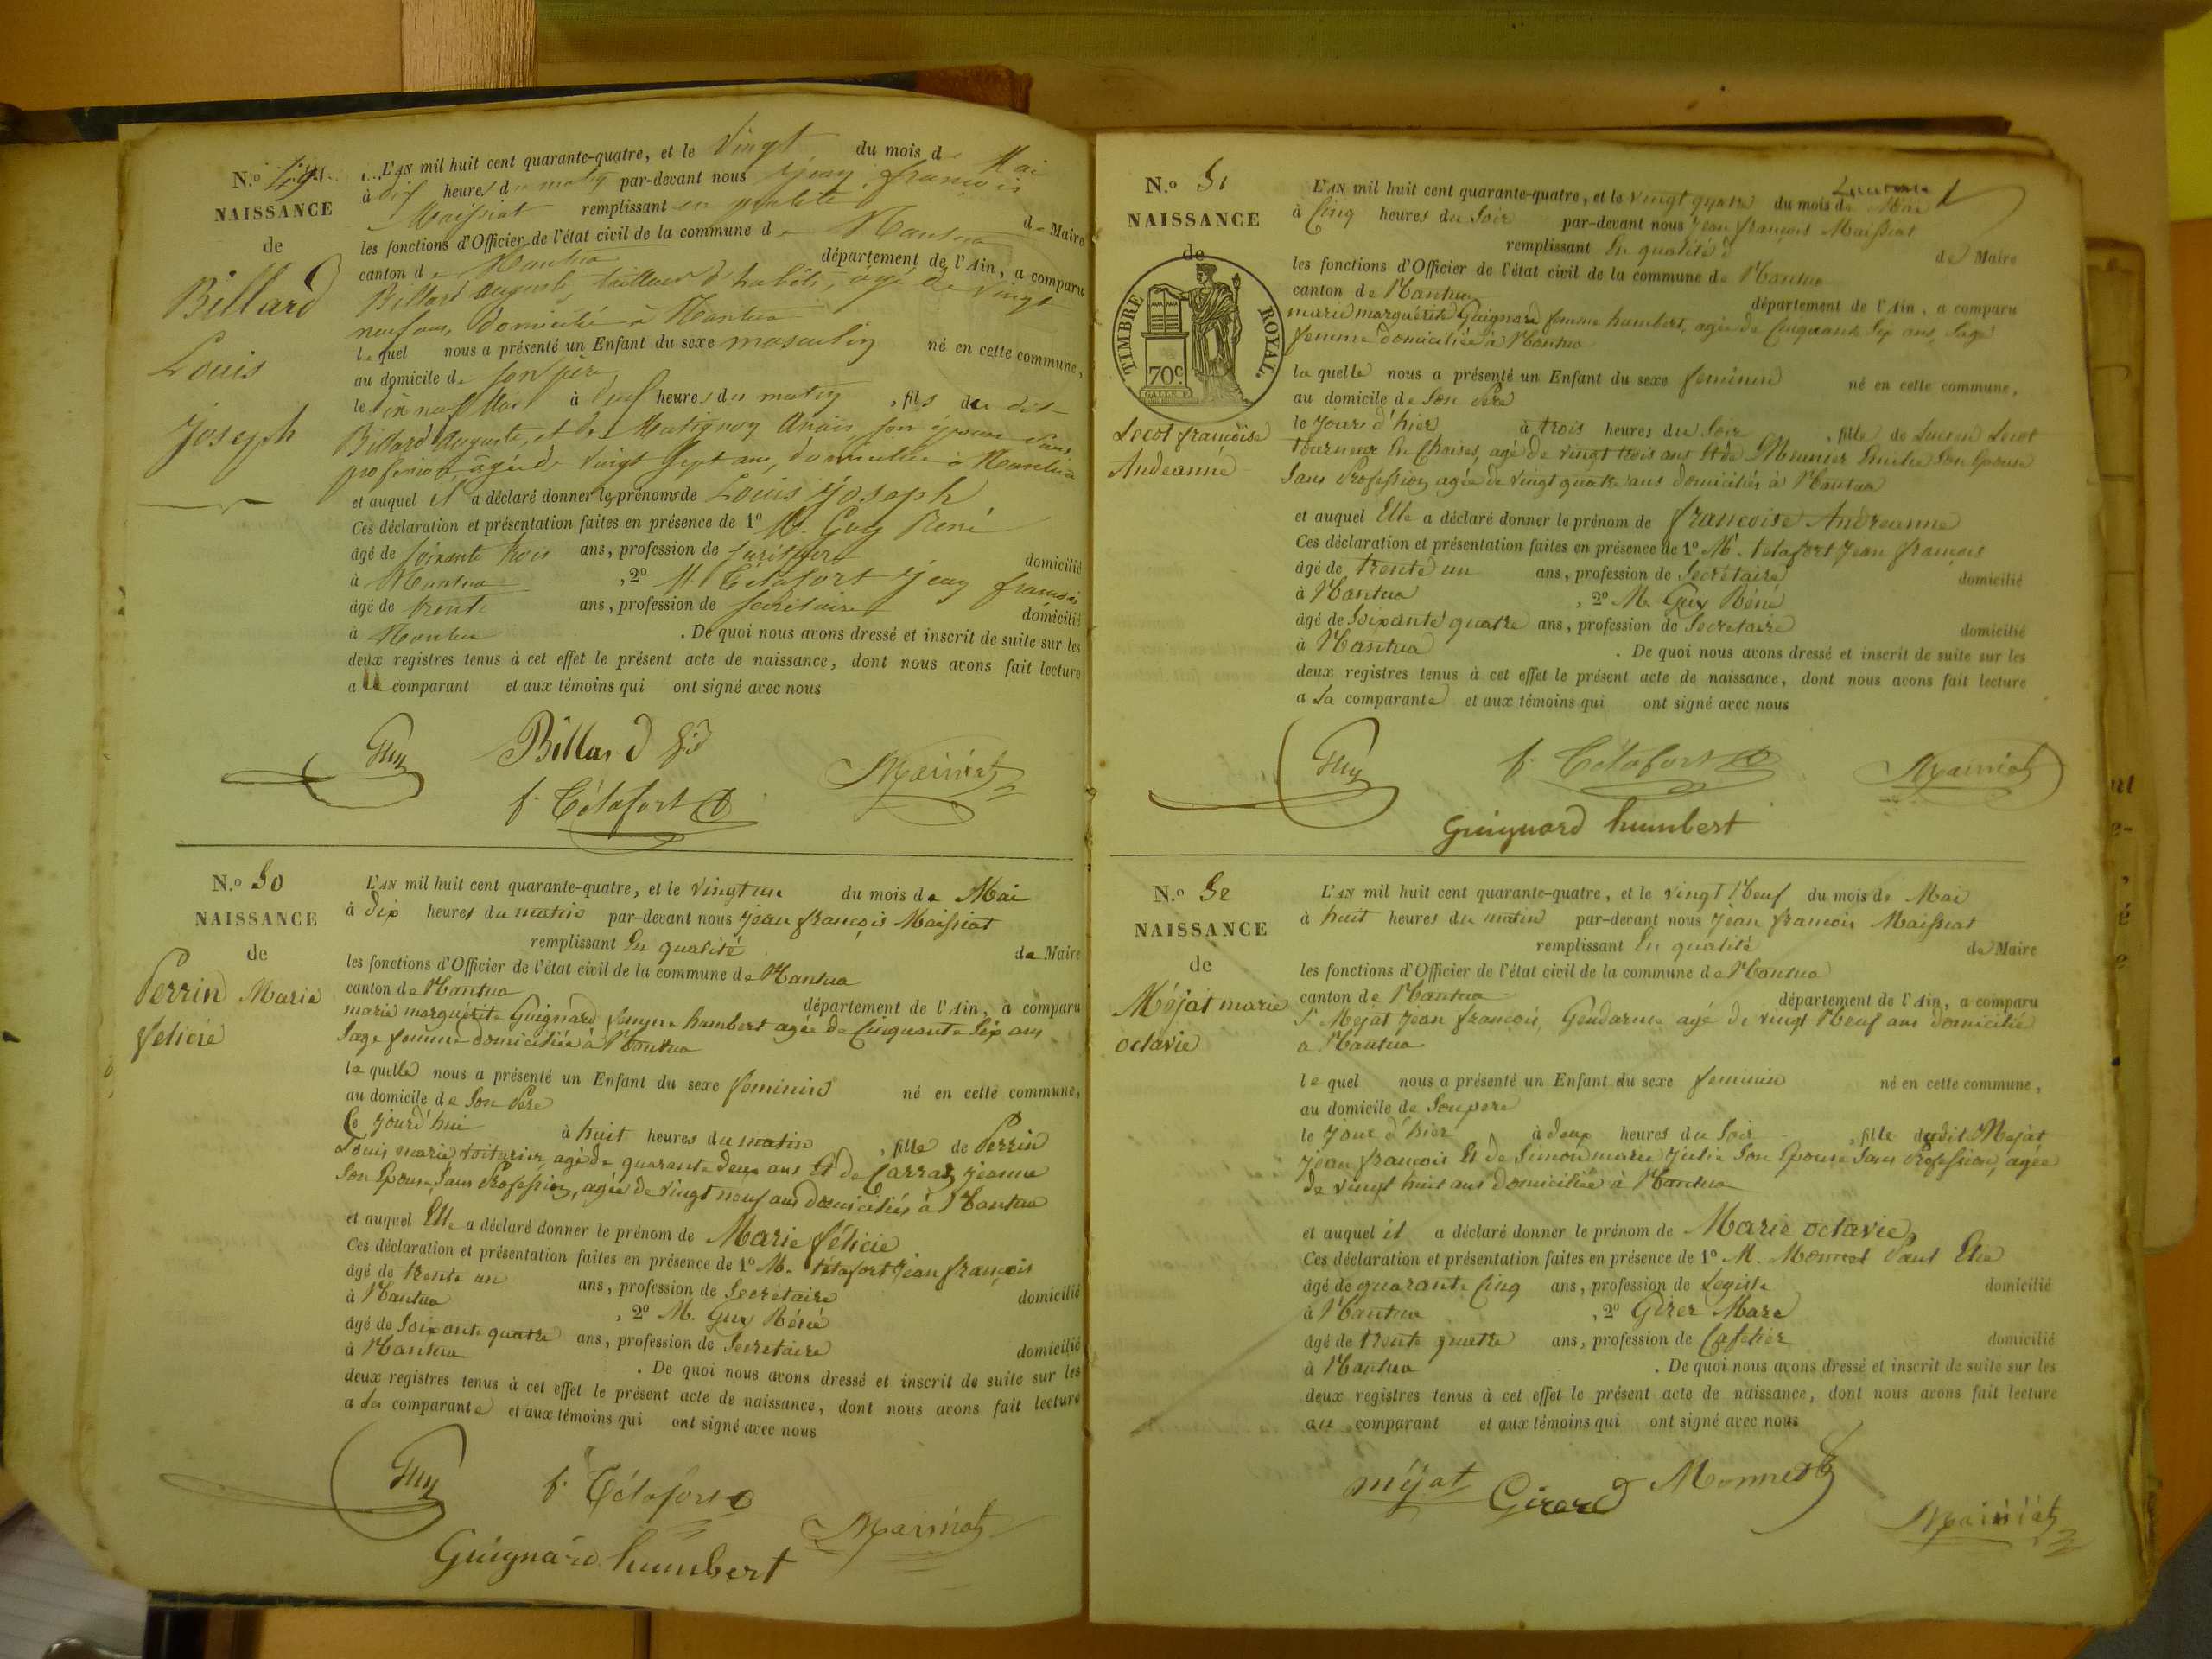 N.º 49
NAISSANCE
de
Billard
Louis
Joseph
L'AN mil huit cent quarante-quatre, et le vingt du mois de Mai
à dix heures du matin par-devant nous Jean françois
Maissiat remplissant en qualité de Maire
les fonctions d'Officier de l'état civil de la commune de Nantua
canton de Nantua département de l'Ain, a comparu
Billard auguste, tailleur d'habits, âgé de vingt
neuf ans, domicilié à Nantua
lequel nous a présenté un Enfant du sexe masculin né en cette commune,
au domicile de son père
le dix neuf Mai à heures du matin, fils du dit
Billard Auguste, et de Matignon Anaïs son épouse sans
profession, âgée de vingt sept ans, domiciliée à Nantua
et auquel il a déclaré donner les prénoms de Louis Joseph
Ces déclaration et présentation faites en présence de 1º M. Guy René
âgé de soixante trois ans, profession de secrétaire domicilié
à Nantua, 2º M. Tétafort Jean françois
âgé de trente ans, profession de secrétaire domicilié
à Nantua. De quoi nous avons dressé et inscrit de suite sur les
deux registres tenus à cet effet le présent acte de naissance, dont nous avons fait lecture
au comparant et aux témoins qui ont signé avec nous
Guy Billard Maissiat
f. Tétafort
N.º 50
NAISSANCE
de
Perrin Marie
félicie
L'AN mil huit cent quarante-quatre, et le vingt un du mois de Mai
à dix heures du matin par-devant nous Jean françois Maissiat
remplissant En qualité de Maire
les fonctions d'Officier de l'état civil de la commune de Nantua
canton de Nantua département de l'Ain, a comparu
marie marguerite Guignard femme humbert agée de Cinquante Six ans
Sage femme domiciliée à Nantua
laquelle nous a présenté un Enfant du sexe feminin né en cette commune,
au domicile de Son Père
le jourd'hui à huit heures du matin, fille de Perrin
Louis marie voiturier, agé de quarante deux ans Et de Carraz Jeanne
Son Epouse, Sans Profession, agée de vingt neuf ans domiciliés à Nantua
et auquel Elle a déclaré donner le prénom de Marie félicie
Ces déclaration et présentation faites en présence de 1º M. tétafort Jean françois
âgé de trente un ans, profession de Secrétaire domicilié
à Nantua, 2º M. Guy Réné
âgé de Soixante quatre ans, profession de Secretaire domicilié
à Nantua. De quoi nous avons dressé et inscrit de suite sur les
deux registres tenus à cet effet le présent acte de naissance, dont nous avons fait lecture
a la comparante et aux témoins qui ont signé avec nous
Guy f. Tétafort Maissiat
Guignard humbert
N.º 51
NAISSANCE
de
TIMBRE ROYAL.
70c
Lecot françoise
Andeanne
L'AN mil huit cent quarante-quatre, et le vingt quatre du mois de Mai
à Cinq heures du Soir par-devant nous Jean françois Maissiat
remplissant En qualité de Maire
les fonctions d'Officier de l'état civil de la commune de Nantua
canton de Nantua département de l'Ain, a comparu
marie marguérite Guignard femme humbert, agée de Cinquante Six ans, Sage
femme domiciliée à Nantua
laquelle nous a présenté un Enfant du sexe feminin né en cette commune,
au domicile de Son Père
le jour d'hier à trois heures du Soir, fille de Lucien Lecot
tourneur En Chaises, agé de vingt trois ans Et de Meunier Emilie Son Epouse
Sans Profession agée de vingt quatre ans domiciliés à Nantua
et auquel Elle a déclaré donner le prénom de françoise Andreanne
Ces déclaration et présentation faites en présence de 1º M. tetafort Jean françois
âgé de trente un ans, profession de Secrétaire domicilié
à Nantua, 2º M. Guy Réné
âgé de Soixante quatre ans, profession de Secretaire domicilié
à Nantua. De quoi nous avons dressé et inscrit de suite sur les
deux registres tenus à cet effet le présent acte de naissance, dont nous avons fait lecture
a La comparante et aux témoins qui ont signé avec nous
Guy f. Tétafort Maissiat
Guignard humbert
N.º 52
NAISSANCE
de
Méjat marie
octavie
L'AN mil huit cent quarante-quatre, et le vingt Neuf du mois de Mai
à huit heures du matin par-devant nous Jean françois Maissiat
remplissant En qualité de Maire
les fonctions d'Officier de l'état civil de la commune de Nantua
canton de Nantua département de l'Ain, a comparu
Sr Mejat Jean françois, Gendarme agé de vingt Neuf ans domicilié
a Nantua
lequel nous a présenté un Enfant du sexe feminin né en cette commune,
au domicile de Son pere
le jour d'hier à deux heures du Soir, fille dudit Mejat
Jean françois Et de Simon marie Julie Son Epouse Sans Profession, agée
de vingt huit ans domiciliée à Nantua
et auquel il a déclaré donner le prénom de Marie octavie,
Ces déclaration et présentation faites en présence de 1º M. Monnet Paul Elie
âgé de quarante Cinq ans, profession de Legiste domicilié
à Nantua, 2º Girer Marc
âgé de trente quatre ans, profession de Cafetier domicilié
à Nantua. De quoi nous avons dressé et inscrit de suite sur les
deux registres tenus à cet effet le présent acte de naissance, dont nous avons fait lecture
au comparant et aux témoins qui ont signé avec nous
mejat Girerd Monnet
Maissiat